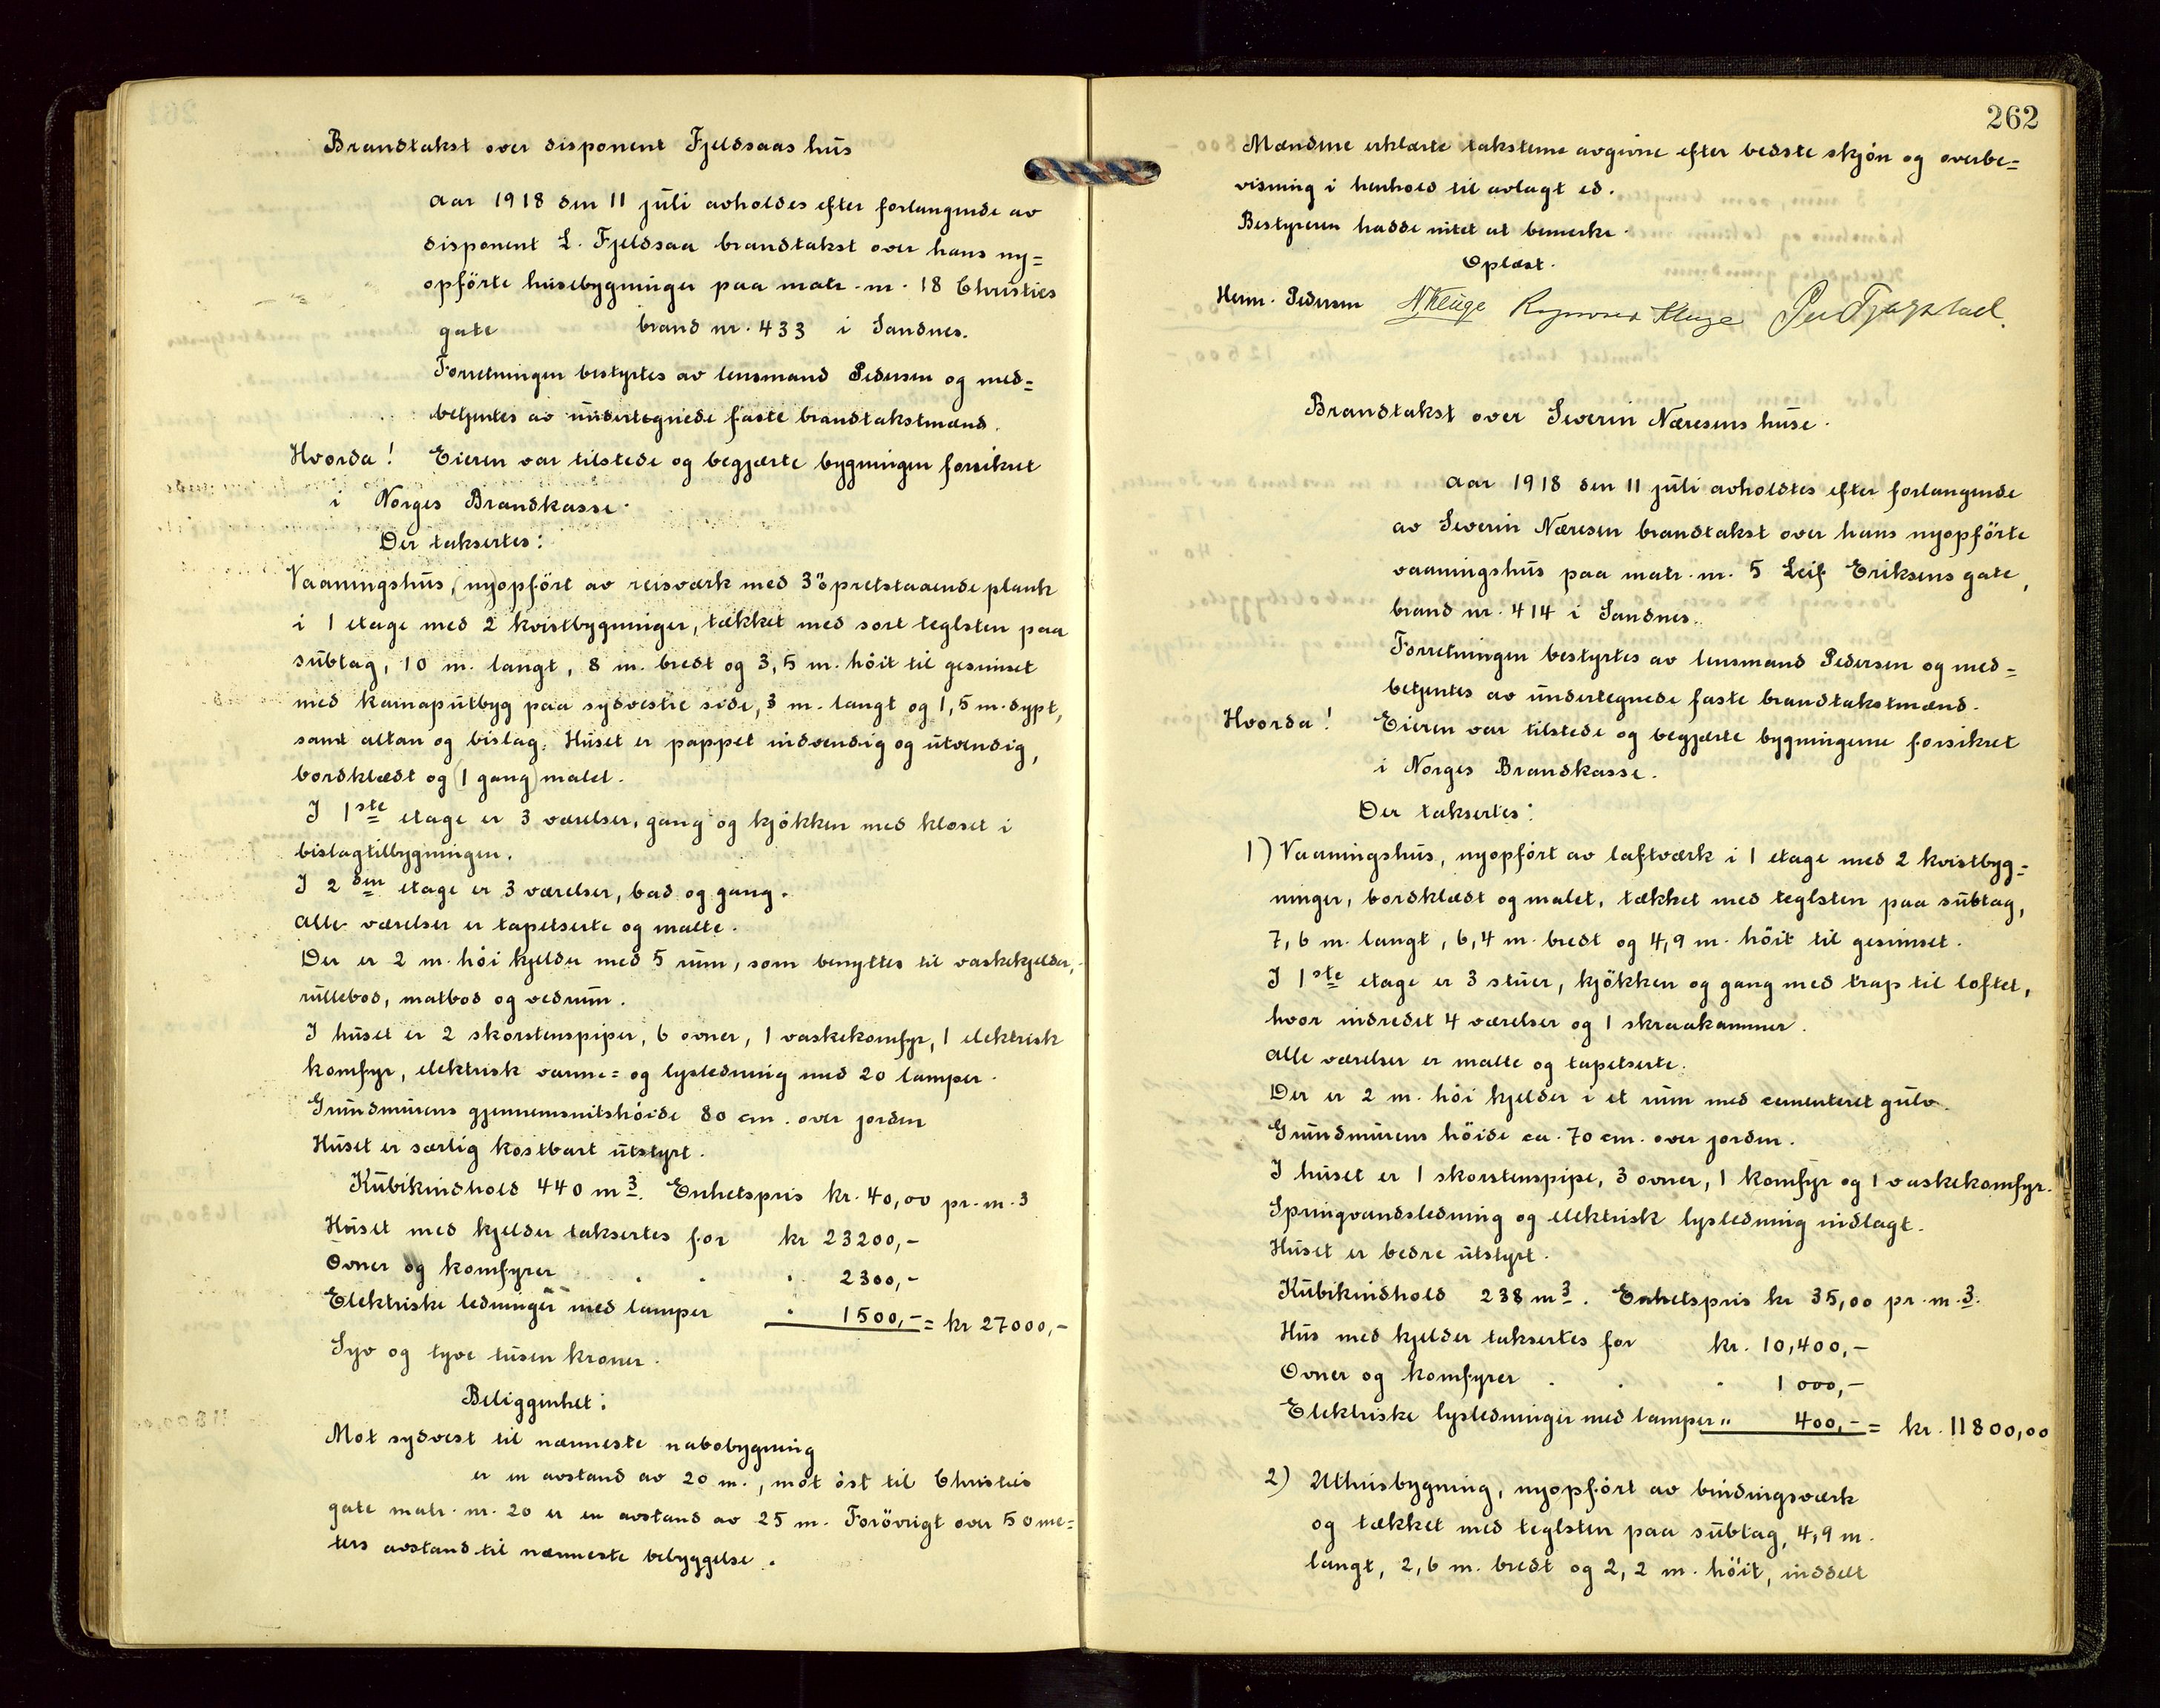 Brandtakst over disponent Fjeldsaas hus
Aar 1918 den 11 juli avholdes efter forlangende av
disponent L. Fjeldsaa brandtakst over hans ny=
opførte husebygninger paa matr. nr. 18 Christies
gate brand nr. 433 i Sandnes.
Forretningen bestyrtes av lensmand Pedersen og med=
betjentes av undertegnede faste brandtakstmænd.
Hvorda! Eieren var tilstede og begjærte bygningen forsikret
i Norges Brandkasse.
Der taksertes:
Vaaningshus, (ny)opført av reisværk med 3" opretstaaende plank
i 1 etage med 2 kvistbygninger, tækket med sort teglsten paa
subtag, 10 m. langt, 8 m. bredt og 3,5 m. høit til gesimset
med karnaputbyg paa sydvestre side, 3 m. langt og 1,5 m. dypt,
samt altan og bislag. Huset er pappet indvendig og utvendig,
bordklædt og (1 gang) malet.
I 1ste etage er 3 værelser, gang og kjøkken med kloset i
bislagtilbygningen.
I 2den etage er 3 værelser, bad og gang.
Alle værelser er tapetserte og malte.
Der er 2 m. høi kjelder med 5 rum, som benyttes til vaskekjelder,
rullebod, matbod og vedrum.
I huset er 2 skorstenspiper, 6 ovner, 1 vaskekomfyr, 1 elektrisk
komfyr, elektrisk varme= og lysledning med 20 lamper.
Grundmurens gjennemsnitshøide 80 cm. over jorden
Huset er særlig kostbart utstyrt.
Kubikindhold 440 m3. Enhetspris kr. 40,00 pr. m. 3
Huset med kjelder taksertes for kr 23200,-
Ovner og komfyrer . . . 2300,-
Elektriske ledninger med lamper . 1500,- = kr 27000,-
Syv og tyve tusen kroner.
Beliggenhet:
Mot sydvest til nærmeste nabobygning
er en avstand av 20 m., mot øst til Christies
gate matr. nr. 20 er en avstand av 25 m. Forøvrigt over 50 me=
ters avstand til nærmeste bebyggelse.
262
Mændene erklærte taksterne avgivne efter bedste skjøn og overbe=
visning i henhold til avlagt ed.
Bestyreren hadde intet at bemerke.
Oplæst.
Herm. Pedersen N Kluge Rasmus Kluge
Brandtakst over Severin Næresens huse.
Aar 1918 den 11 juli avholdtes efter forlangende
av Severin Næresen brandtakst over hans nyopførte
vaaningshus paa matr. nr. 5 Leif Eriksens gate,
brand nr. 414 i Sandnes.
Forretningen bestyrtes av lensmand Pedersen og med=
betjentes av undertegnede faste brandtakstmænd.
Hvorda! Eieren var tilstede og begjærte bygningerne forsikret
i Norges Brandkasse.
Der taksertes:
1) Vaaningshus, nyopført av laftværk i 1 etage med 2 kvistbyg=
ninger, bordklædt og malet, tækket med teglsten paa subtag,
7,6 m. langt, 6,4 m. bredt og 4,9 m. høit til gesimset.
I 1ste etage er 3 stuer, kjøkken og gang med trap til loftet,
hvor indredet 4 værelser og 1 skraakammer.
Alle værelser er malte og tapetserte.
Der er 2 m. høi kjelder i et rum med cementeret gulv.
Grundmurens høide ca. 70 cm. over jorden.
I huset er 1 skorstenspipe, 3 ovner, 1 komfyr og 1 vaskekomfyr.
Springvandsledning og elektrisk lysledning indlagt.
Huset er bedre utstyrt.
Kubikindhold 238 m3. Enhetspris kr 35,00 pr. m. 3.
Hus med kjelder taksertes for kr. 10,400,-
Ovner og komfyrer . . . 1000,-
Elektriske lysledninger med lamper " 400,- = kr. 11800,00
2) Uthusbygning, nyopført av bindingsværk
og tækket med teglsten paa subtag, 4,9 m.
langt, 2,6 m. bredt og 2,2 m. høit, inddelt